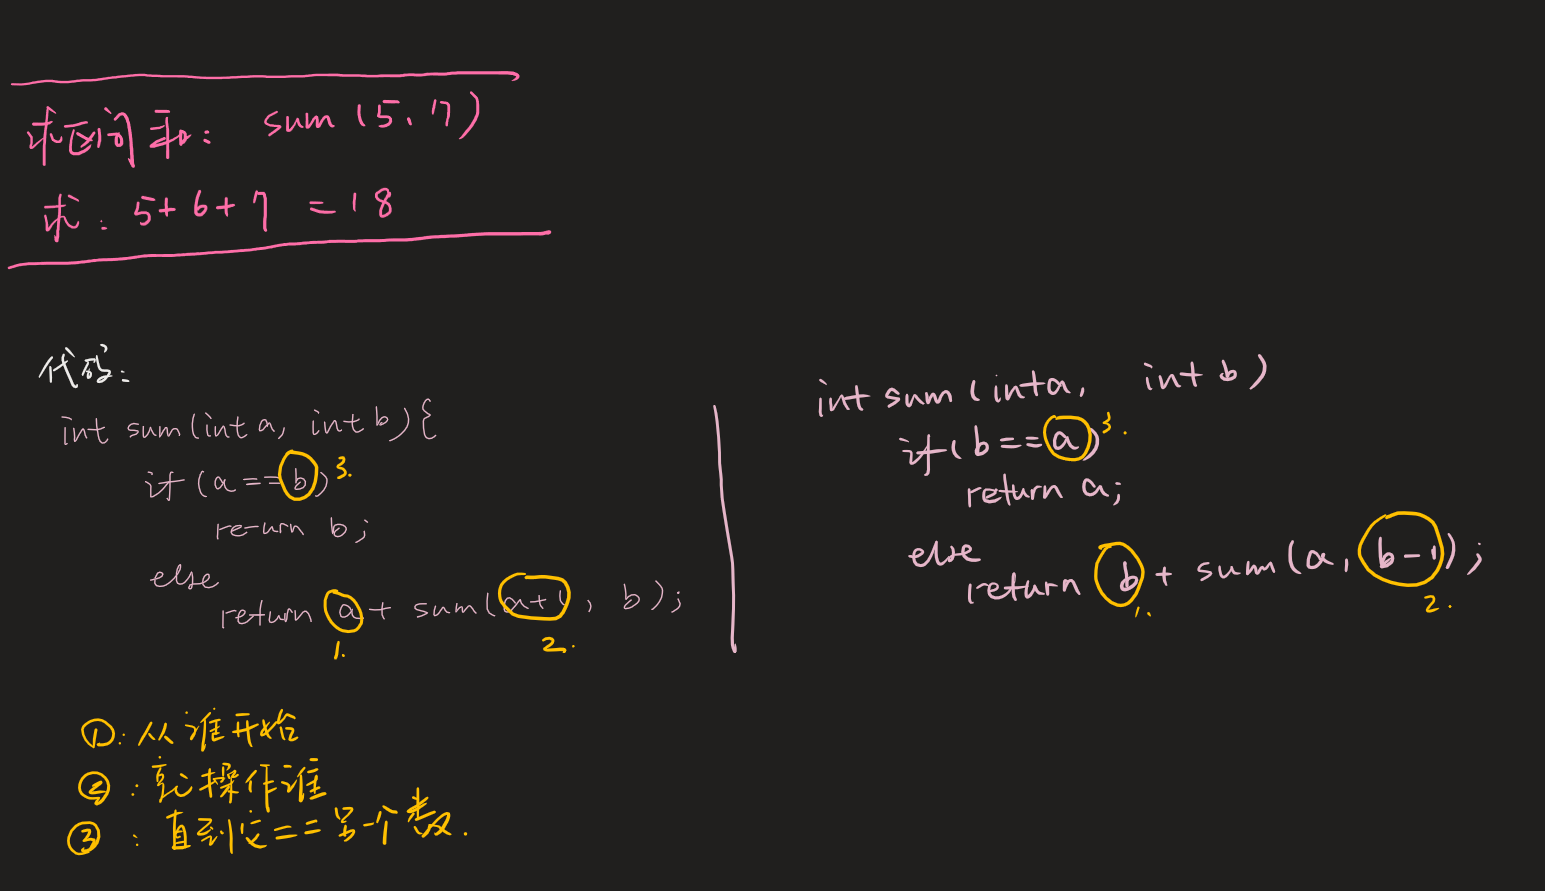 求区间和: sum (5, 7)
求: 5+6+7 =18
代码:
int sum(int a, int b){
if (a==b) 3.
return b;
else
return a + sum(a+1, b);
1. 2.
int sum (int a, int b)
if ( b==a) 3.
return a;
else
return b + sum(a, b-1);
1. 2.
①: 从谁开始
②: 就操作谁
③: 直到它==另一个数.